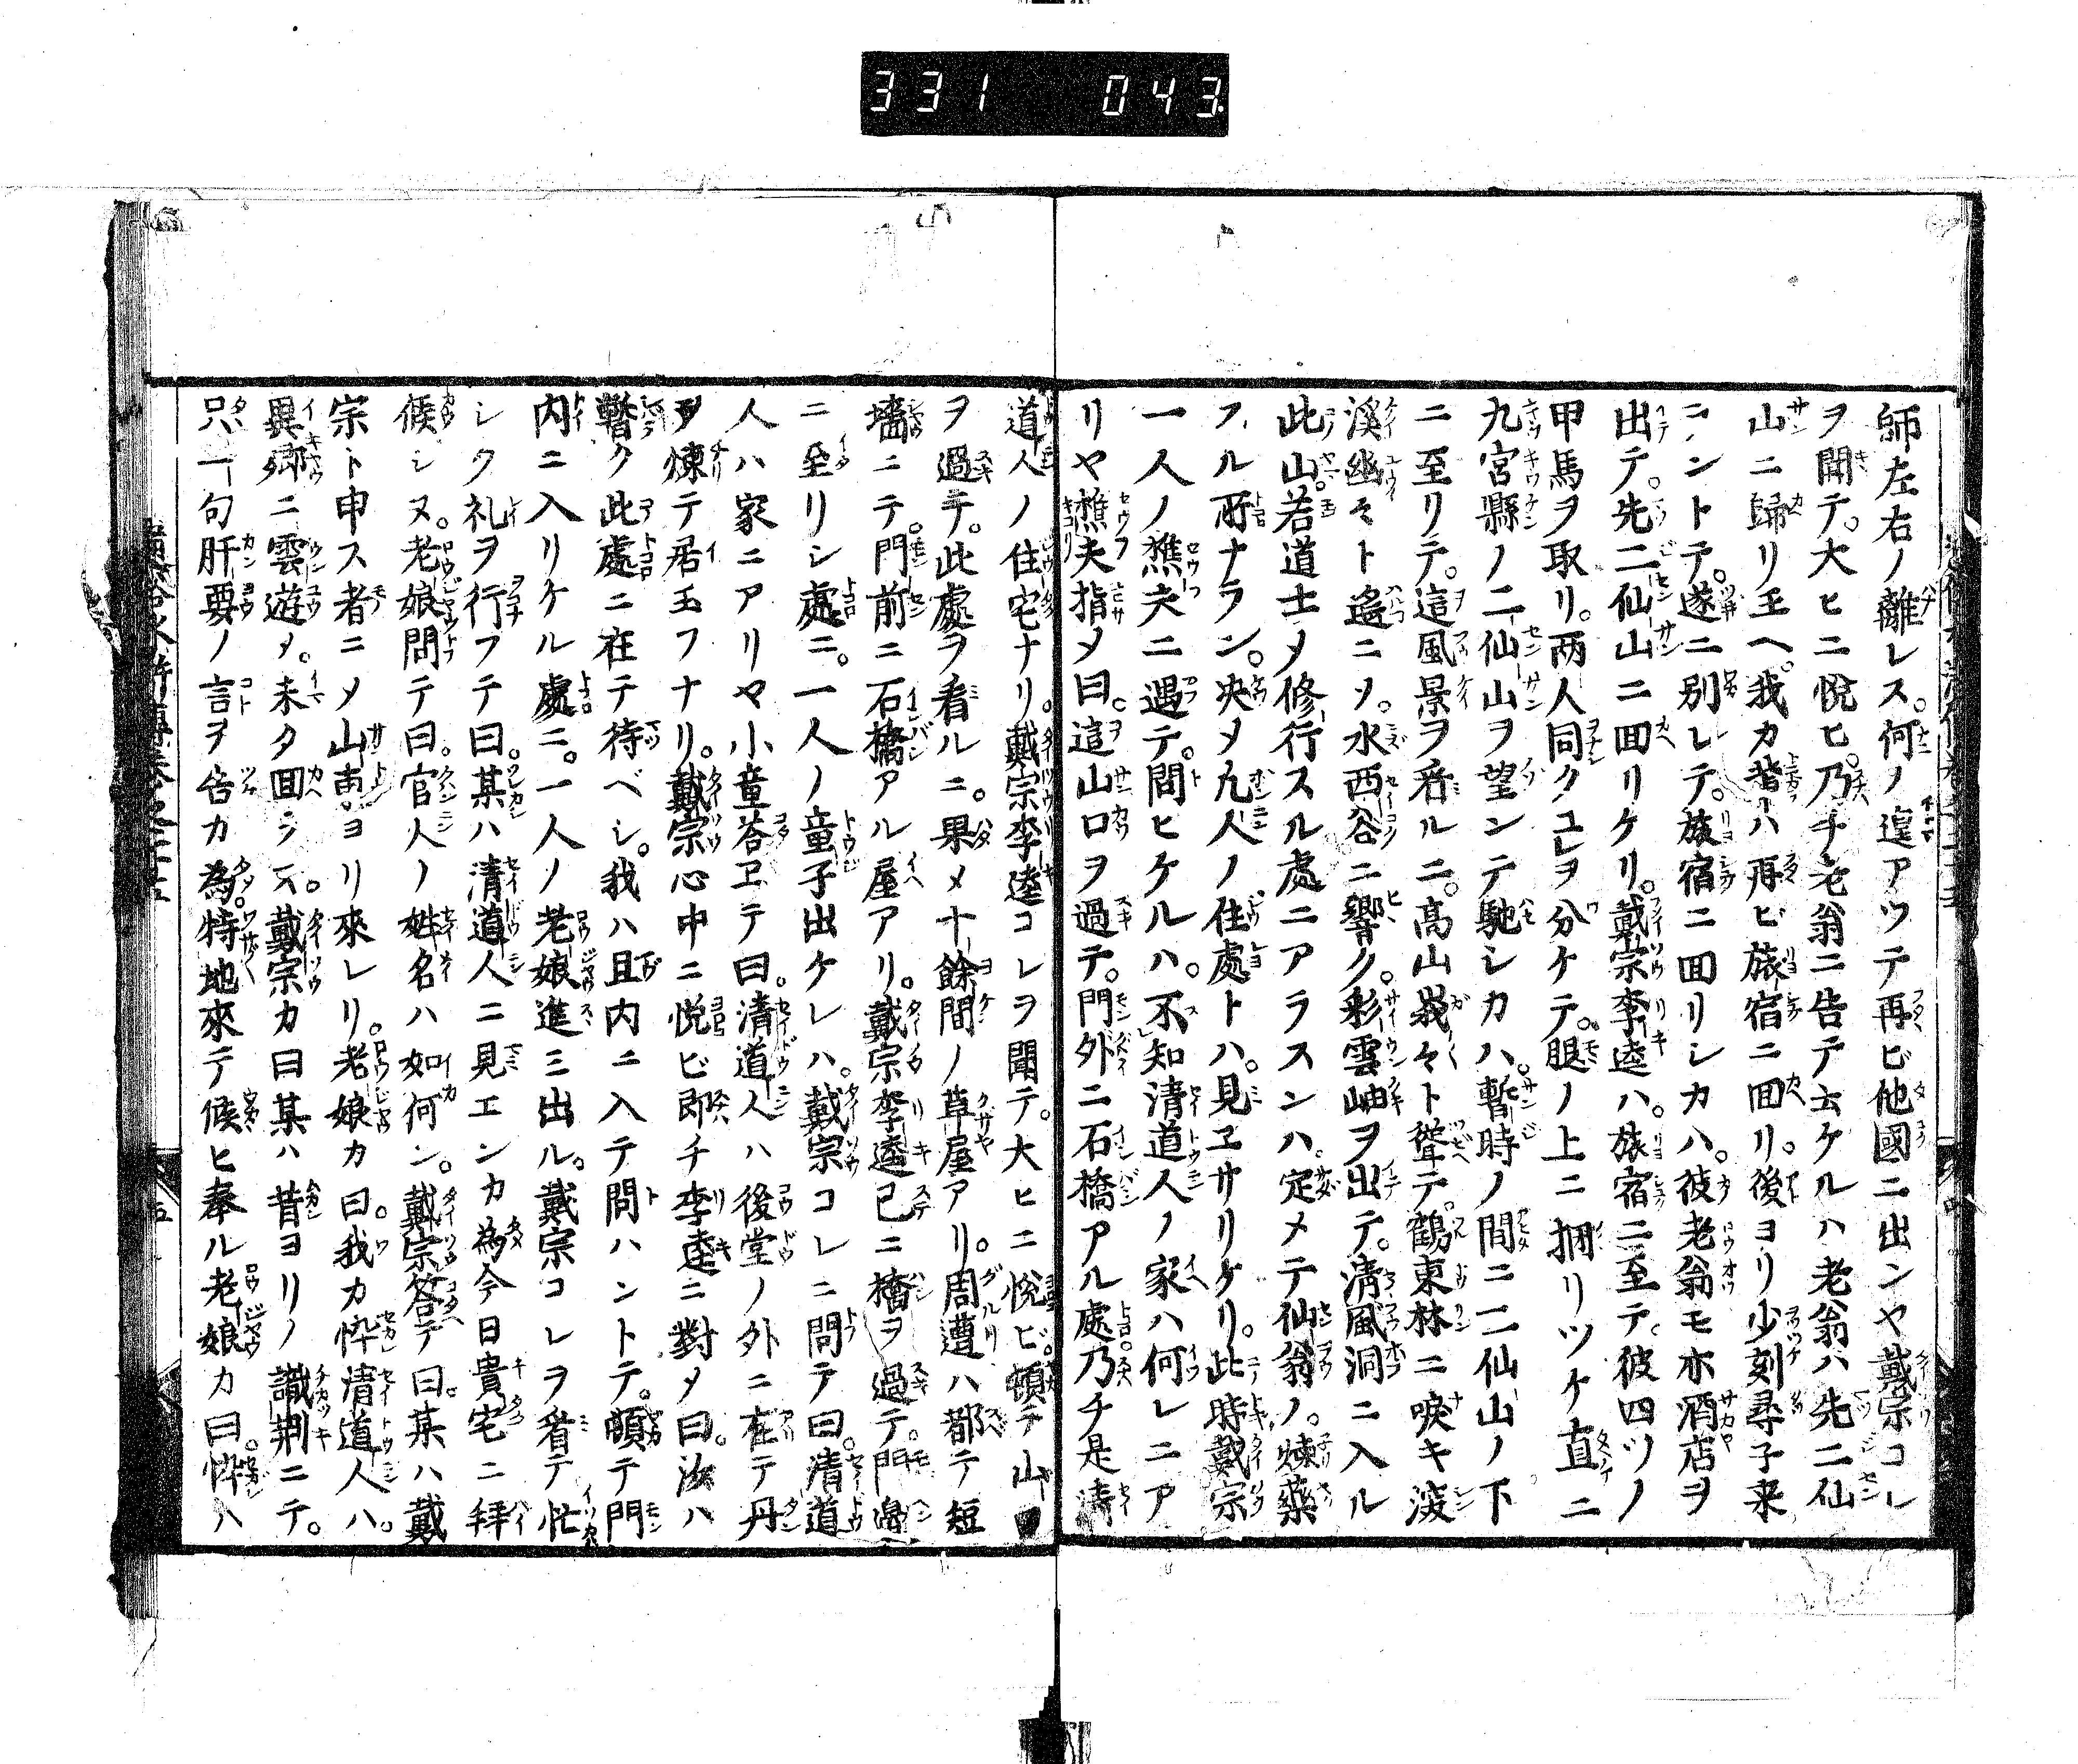 331 043
師左右ノ離レス。何ノ遑アツテ再ビ他國ニ出ンヤ戴宗コレ
ヲ聞テ。大ヒニ悦ヒ。乃チ老翁ニ告テ云ケルハ老翁ハ先二仙
山ニ歸リ玉ヘ。我カ輩ハ再ビ旅宿ニ回リ。後ヨリ少刻尋子来
ニントテ。遂ニ别レテ。旅宿ニ回リシカハ。彼老翁モ亦酒店ヲ
出テ。先二仙山ニ回リケリ。戴宗李逵ハ。旅宿ニ至テ。彼四ツノ
甲馬ヲ取リ。两人同クユヲ分ケテ。腿ノ上ニ捆リツケ直ニ
九宮縣ノ二仙山ヲ望ンテ馳シカハ。暫時ノ間ニ二仙山ノ下
ニ至リテ。這風景ヲ看ルニ。高山峩々ト聳テ。鶴東林ニ唳キ澗
溪幽々ト遙ニソ。水西谷ニ響ク。彩雲岫ヲ出テ。清風洞ニ入ル
此山。若道士メ修行スル處ニアラスンハ。定メテ仙翁ノ。煉藥
フル所ナラン。决メ凡人ノ住處トハ。見ヱサリケリ。此時戴宗
一人ノ樵夫ニ遇テ。問ヒケルハ。不知清道人ノ家ハ何レニア
リヤ樵夫指メ曰。這山口ヲ過テ。門外ニ石橋アル處乃チ是清
道人ノ住宅ナリ。戴宗李逵コレヲ聞テ。大ヒニ悦ビ。頓テ山口
ヲ過テ。此處ヲ看ルニ。果メ十餘間ノ草屋アリ。周遭ハ都テ短
墻ニテ。門前ニ石橋アル屋アリ。戴宗李逵已ニ橋ヲ過テ。門邉
ニ至リシ處ニ。一人ノ童子出ケレハ。戴宗コレニ問テ曰。清道
人ハ家ニアリヤ小童荅ヱテ曰。清道人ハ後堂ノ外ニ在テ丹
ヲ煉テ居玉フナリ。戴宗心中ニ悦ビ即チ李逵ニ對メ曰。汝ハ
暫ク此處ニ在テ待ベシ。我ハ且内ニ入テ問ハントテ。頓テ門
内ニ入リケル處ニ。一人ノ老娘進ミ出ル。戴宗コレヲ看テ忙
シク礼ヲ行フテ曰。某ハ清道人ニ見エンカ為今日貴宅ニ拜
候シヌ。老娘問テ曰。官人ノ姓名ハ如何ン。戴宗答テ曰。某ハ戴
宗ト申ス者ニメ山東ヨリ來レリ。老娘カ曰。我カ悴清道人ハ。
異郷ニ雲遊メ。未タ回ラス。戴宗カ曰某ハ昔ヨリノ識荆ニテ。
只一句肝要ノ言ヲ告カ為。特地來テ候ヒ奉ル老娘カ曰。悴ハ